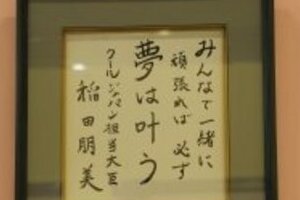 みんなで一緒に
頑張れば 必ず
夢は叶う
クールジャパン担当大臣
稲田朋美